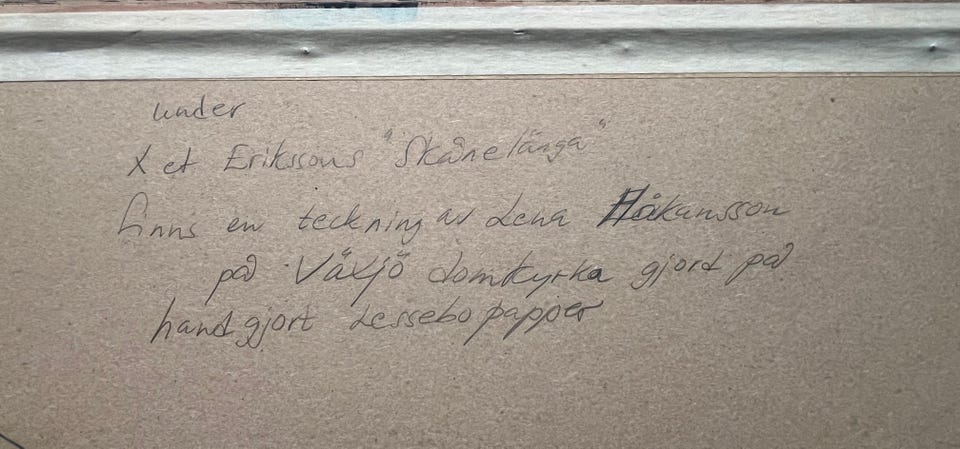 under
X et Erikssons "Skånelänga"
finns en teckning av Lena Håkansson
på Växjö domkyrka gjord på
handgjort Lessebo papper